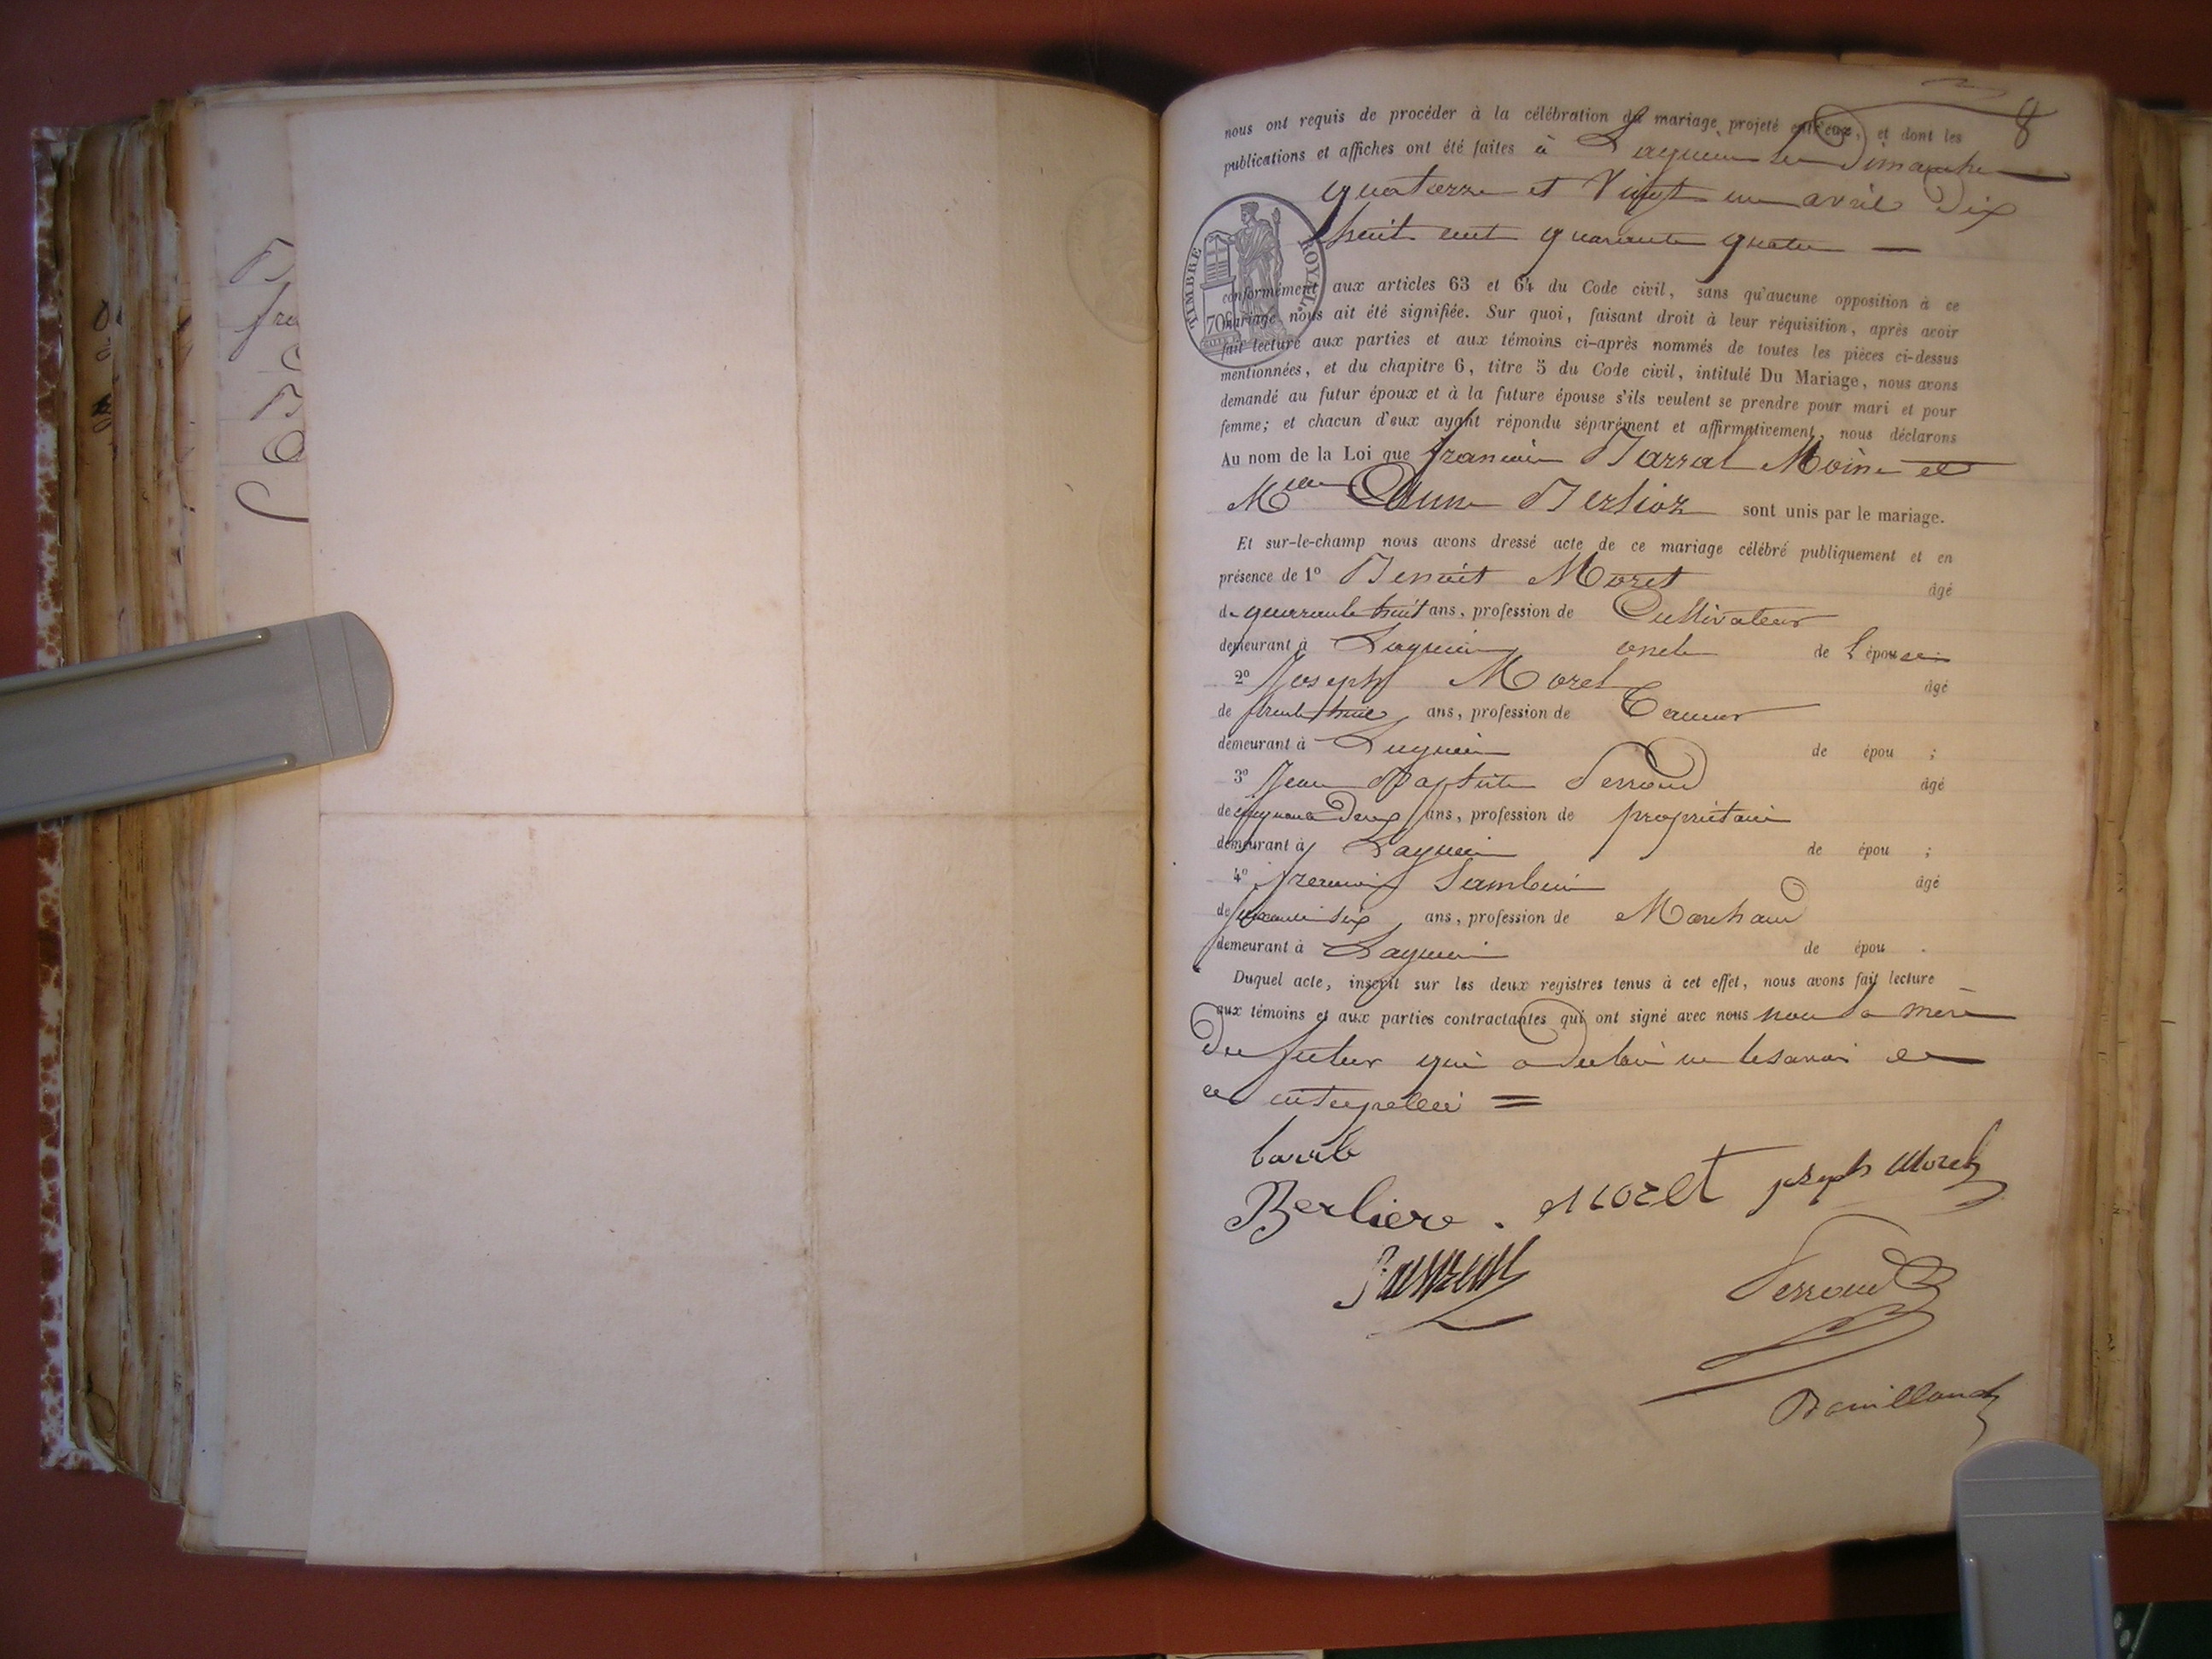 nous ont requis de procéder à la célébration du mariage projeté entr'eux, et dont les
8
publications et affiches ont été faites à Lagnieu les Dimanche
quatorze et Vingt un avril Dix
huit cent quarante quatre
TIMBRE ROYAL
70c
conformément aux articles 63 et 64 du Code civil, sans qu'aucune opposition à ce
mariage nous ait été signifiée. Sur quoi, faisant droit à leur réquisition, après avoir
fait lecture aux parties et aux témoins ci-après nommés de toutes les pièces ci-dessus
mentionnées, et du chapitre 6, titre 5 du Code civil, intitulé Du Mariage, nous avons
demandé au futur époux et à la future épouse s'ils veulent se prendre pour mari et pour
femme; et chacun d'eux ayant répondu séparément et affirmativement, nous déclarons
Au nom de la Loi que françois Barral Moine et
Melle Anne Berlioz sont unis par le mariage.
Et sur-le-champ nous avons dressé acte de ce mariage célébré publiquement et en
présence de 1º Benoit Moret âgé
de quarante huit ans, profession de Cultivateur
demeurant à Lagnieu oncle de l'épouse
2º Joseph Morel âgé
de trente huit ans, profession de Tanneur
demeurant à Lagnieu de épou ;
3º Jean Baptiste Perroud âgé
de cinquante Deux ans, profession de propriétaire
demeurant à Lagnieu de épou ;
4º françois âgé
de six ans, profession de Marchand
demeurant à Lagnieu de épou .
Duquel acte, inscrit sur les deux registres tenus à cet effet, nous avons fait lecture
aux témoins et aux parties contractantes qui ont signé avec nous non la mère
du futur qui a declaré ne le savoir de
ce interpellée =
Berliere . Moret joseph Morel
Perroud